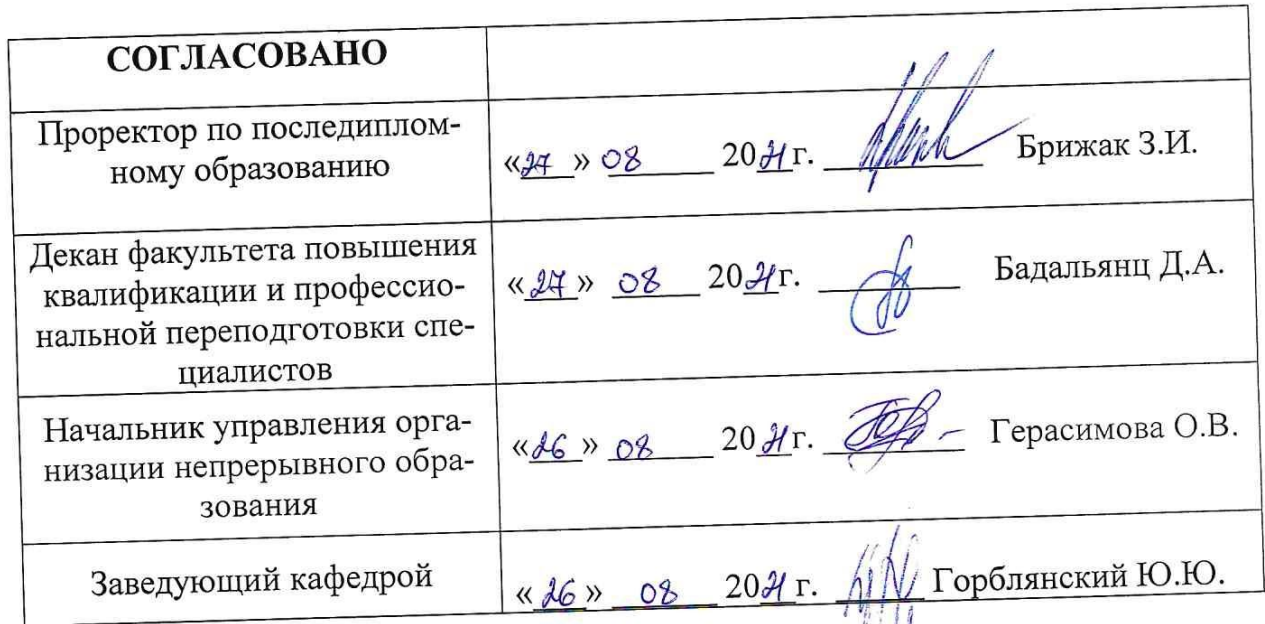 СОГЛАСОВАНО
Проректор по последиплом-
ному образованию
«27» 08 2021г. Брижак З.И.
Декан факультета повышения
квалификации и профессио-
нальной переподготовки спе-
циалистов
«27» 08 2021г. Бадальянц Д.А.
Начальник управления орга-
низации непрерывного обра-
зования
«26» 08 2021г. Герасимова О.В.
Заведующий кафедрой
«26» 08 2021г. Горблянский Ю.Ю.